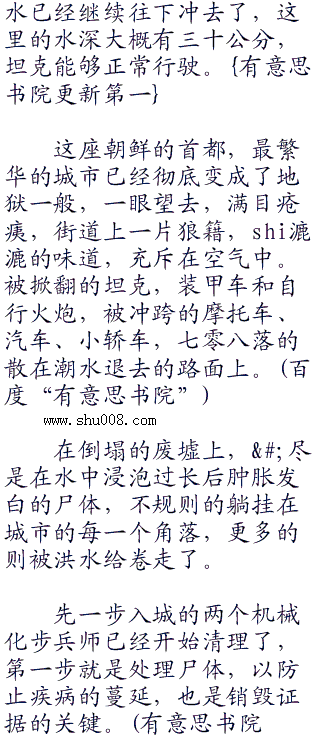 水已经继续往下冲去了，这
里的水深大概有三十公分，
坦克能够正常行驶。{有意思
书院更新第一}
这座朝鲜的首都，最繁
华的城市已经彻底变成了地
狱一般，一眼望去，满目疮
痍，街道上一片狼籍，shi漉
漉的味道，充斥在空气中。
被掀翻的坦克，装甲车和自
行火炮，被冲跨的摩托车、
汽车、小轿车，七零八落的
散在潮水退去的路面上。(百
度“有意思书院”)
www.shu008.com
在倒塌的废墟上，&#;尽
是在水中浸泡过长后肿胀发
白的尸体，不规则的躺挂在
城市的每一个角落，更多的
则被洪水给卷走了。
先一步入城的两个机械
化步兵师已经开始清理了，
第一步就是处理尸体，以防
止疾病的蔓延，也是销毁证
据的关键。(有意思书院